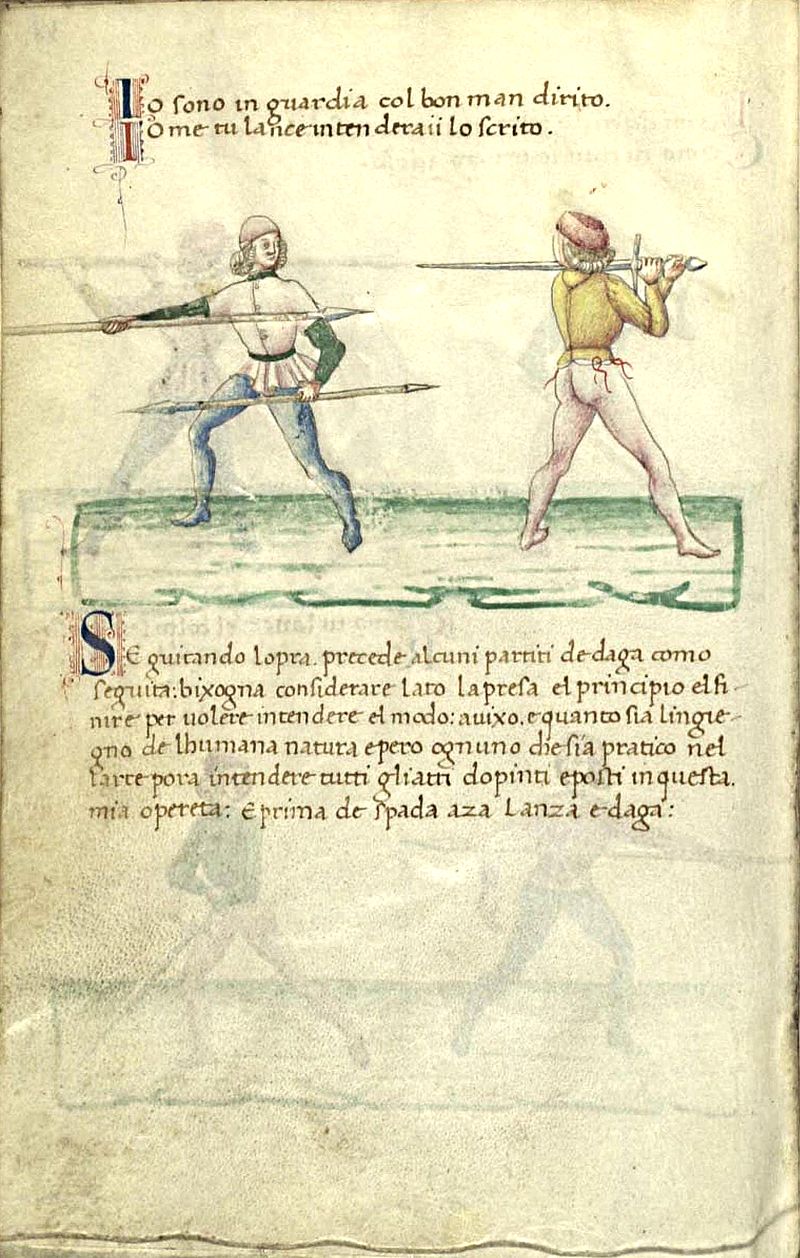 Io sono in guardia col bon man dirito.
Io me tu lance intenderaii lo scrito.
SE guitando lopra. precede alcuni partiti de daga como
seguita: bixogna considerare lato la presa el principio el fi-
nire per uolere intendere el modo: auixo. e quanto sia lingie-
gno de lhumana natura e pero ognuno che sia pratico nel
larte pora intendere tutti gli atti dopinti e posti in questa.
mia opereta: E prima de spada aza Lanza e daga: